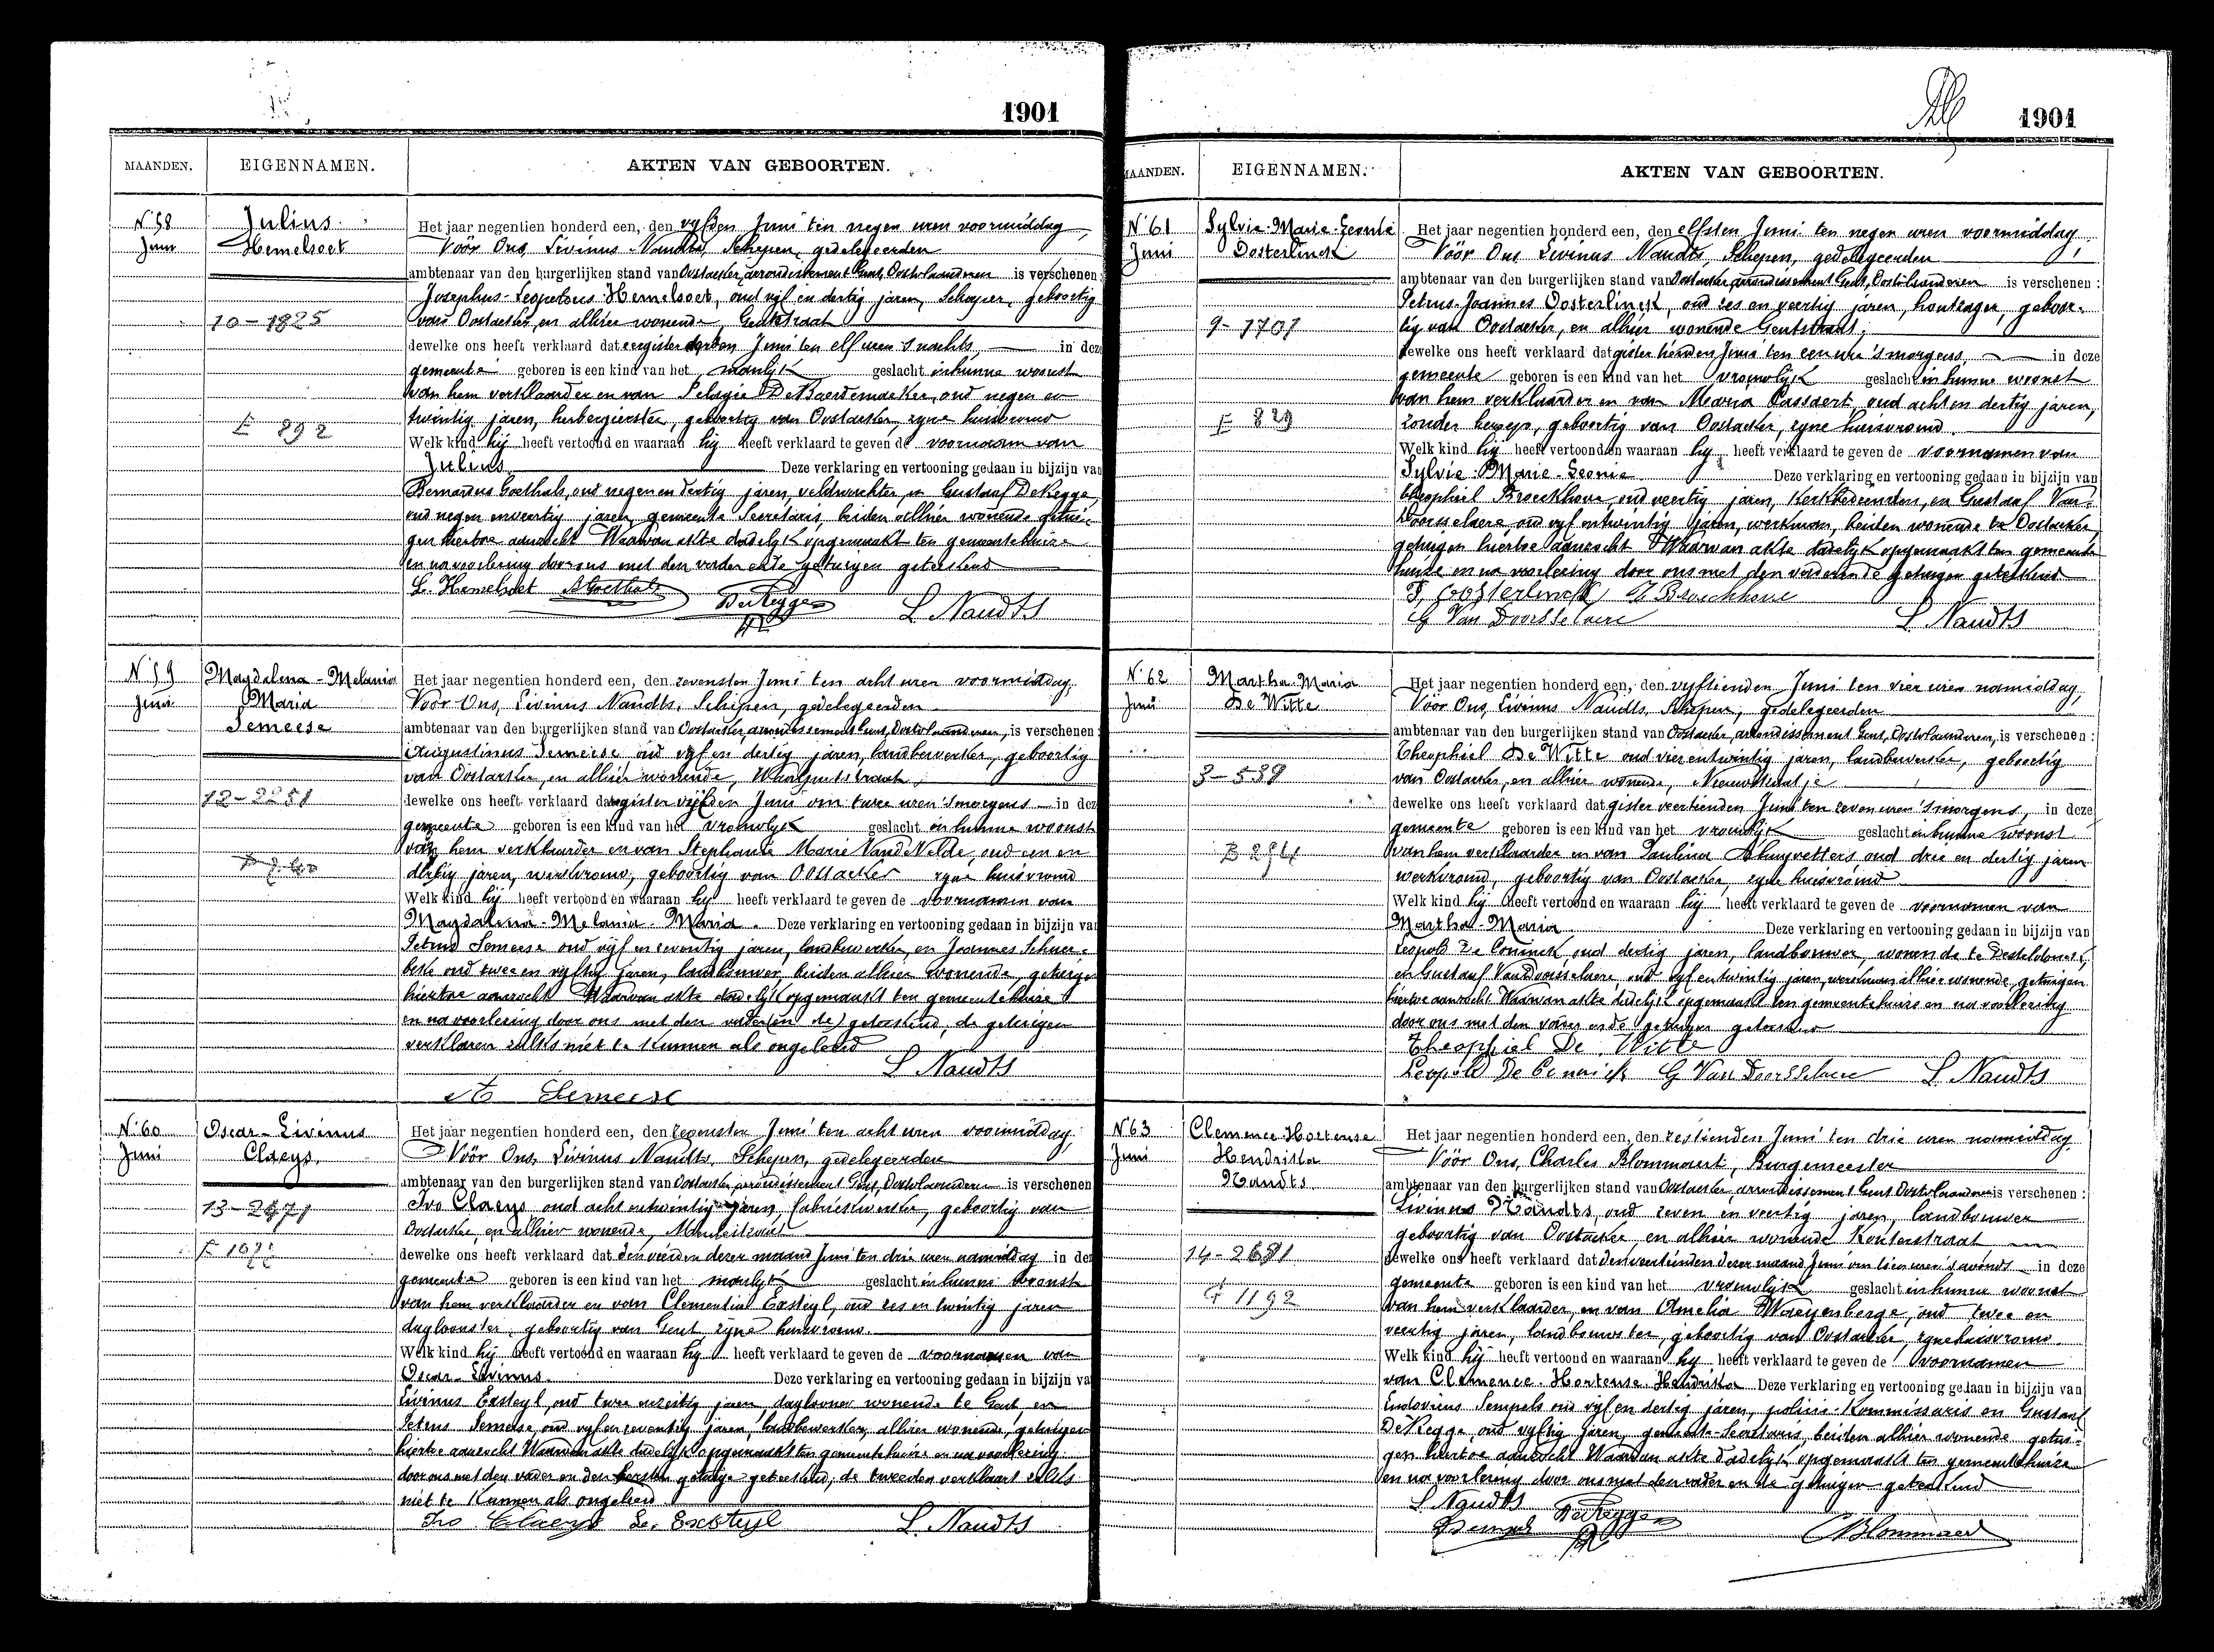 1901
MAANDEN. EIGENNAMEN. AKTEN VAN GEBOORTEN.
N. 58 Julius Het jaar negentien honderd een, den vyfden Juni ten negen uren voormiddag,
Juni Hemelsoet Vóór Ons, Livinus Naudts, Schepen, gedelegeerden
ambtenaar van den burgerlijken stand van Oostacker, arrondissement Gent, Oostvlaanderen is verschenen:
Josephus-Leopoldus Hemelsoet, oud vijf en dertig jaren, geboortig
10-1825 van Oostacker, en alhier wonende, Gentstraat
dewelke ons heeft verklaard dat eergisteren derden Juni ten elf uren 's nachts, in deze
gemeente geboren is een kind van het manlijk geslacht in hunne woonst
van hem verklaarder en van Pelagie De Baerdemaeker, oud negen en
twintig jaren, herbergierster, geboortig van Oostacker, zyne huisvrouw
E 892 Welk kind hij heeft vertoond en waaraan hij heeft verklaard te geven de voornaam van
Julius Deze verklaring en vertooning gedaan in bijzijn van
Bernardus Goethals, oud negen en dertig jaren, veldwachter en Gustaaf De Regge,
oud negen en veertig jaren, gemeente Secretaris, beiden alhier wonende getui-
gen hiertoe aanzocht Waarvan akte dadelyk opgemaakt ten gemeentehuize
en na voorlezing door ons met den vader en de getuigen geteekend
L. Hemelsoet B Goethals De Regge L. Naudts
N. 59 Magdalena-Melania Het jaar negentien honderd een, den zevensten Juni ten acht uren voormiddag,
Juni Maria Vóór Ons, Livinus Naudts, Schepen, gedelegeerden
Semeese ambtenaar van den burgerlijken stand van Oostacker, arrondissement Gent, Oostvlaanderen, is verschenen:
Augustinus Semeese, oud vyf en dertig jaren, landbewerker, geboortig
van Oostacker, en alhier wonende,
12-2251 dewelke ons heeft verklaard dat eergisteren vijfden Juni om twee uren 's morgens in deze
gemeente geboren is een kind van het vrouwlyk geslacht in hunne woonst
van hem verklaarder en van Stephanie Marie Van de Velde, oud een en
dertig jaren, werkvrouw, geboortig van Oostacker zyne huisvrouw
Welk kind hij heeft vertoond en waaraan hij heeft verklaard te geven de voornamen van
Magdalena-Melania-Maria. Deze verklaring en vertooning gedaan in bijzijn van
Petrus Semeese oud vijf en zeventig jaren, landbewerker, en Joannes
oud twee en vyftig jaren, landbouwer, beiden alhier wonende, getuigen
hiertoe aanzocht Waarvan akte dadelijk opgemaakt ten gemeentehuize
en na voorlezing door ons met den vader (en de) geteekend, de getuigen
verklaren zulks niet te kunnen als ongeleerd
L Naudts
A Semeese
N. 60 Oscar-Livinus Het jaar negentien honderd een, den zevensten Juni ten acht uren voormiddag,
Juni Claeys Vóór Ons, Livinus Naudts, Schepen, gedelegeerden
ambtenaar van den burgerlijken stand van Oostacker, arrondissement Gent, Oostvlaanderen is verschenen
13-2471 Ivo Claeys oud acht en twintig jaren, fabriekwerker, geboortig van
Oostacker, en alhier wonende,
dewelke ons heeft verklaard dat den vierden dezer maand Juni ten drie uren namiddag in deze
gemeente geboren is een kind van het manlyk geslacht in hunne woonst
van hem verklaarder en van Clementia Exsteyl, oud zes en twintig jaren
dagloonster, geboortig van Gent, zyne huisvrouw.
Welk kind hij heeft vertoond en waaraan hij heeft verklaard te geven de voornamen van
Oscar-Livinus. Deze verklaring en vertooning gedaan in bijzijn van
Livinus Exsteyl, oud twee en zestig jaren, daglooner wonende te Gent, en
Petrus Semeese, oud vyf en zeventig jaren, landbewerker, alhier wonende, getuigen
hiertoe aanzocht Waarvan akte dadelijk opgemaakt ten gemeentehuize en na voorlezing
door ons met den vader en den eersten getuige geteekend; de tweeden verklaart zulks
niet te kunnen als ongeleerd
Ivo Claeys Le. Exsteyl L. Naudts
1901
MAANDEN. EIGENNAMEN. AKTEN VAN GEBOORTEN.
N. 61 Sylvie-Marie-Leonie Het jaar negentien honderd een, den elfsten Juni ten negen uren voormiddag,
Juni Oosterlinck Vóór Ons Livinus Naudts, Schepen, gedelegeerden
ambtenaar van den burgerlijken stand van Oostacker arrondissement Gent, Oostvlaanderen is verschenen:
Petrus-Joannes Oosterlinck, oud zes en veertig jaren, houtzager, geboor-
9-1701 tig van Oostacker, en alhier wonende Gentstraat,
dewelke ons heeft verklaard dat gister tienden Juni ten een ure 's morgens, in deze
gemeente geboren is een kind van het vrouwlijk geslacht in hunne woonst
van hem verklaarder en van Maria Cassaert, oud acht en dertig jaren,
E 829 zonder beroep, geboortig van Oostacker, zyne huisvrouw.
Welk kind hij heeft vertoond en waaraan hij heeft verklaard te geven de voornamen van
Sylvie-Marie-Leonie Deze verklaring en vertooning gedaan in bijzijn van
Theophiel Broeckhove, oud veertig jaren, kerkbedienden, en Gustaaf Van-
Doorsselaere, oud vyf en twintig jaren, werkman, beiden wonende te Oostacker,
getuigen hiertoe aanzocht Waarvan akte dadelijk opgemaakt ten gemeente
huize en na voorlezing door ons met den vader en de getuigen geteekend
P. Oosterlinck T Broeckhove
G Van Doorsselaere L Naudts
N. 62 Martha-Maria Het jaar negentien honderd een, den vyftienden Juni ten vier uren namiddag,
Juni De Witte Vóór Ons, Livinus Naudts, Schepen, gedelegeerden
ambtenaar van den burgerlijken stand van Oostacker, arrondissement Gent, Oostvlaanderen, is verschenen:
Theophiel De Witte oud vier en twintig jaren, landbewerker, geboortig
3-539 van Oostacker, en alhier wonende, Nieuwstraatje
dewelke ons heeft verklaard dat gister veertienden Juni ten zeven uren 's morgens, in deze
gemeente geboren is een kind van het vrouwlijk geslacht in hunne woonst
B 294 van hem verklaarder en van Paulina oud drie en dertig jaren
werkvrouw, geboortig van Oostacker, zyne huisvrouw
Welk kind hij heeft vertoond en waaraan hij heeft verklaard te geven de voornamen van
Martha-Maria Deze verklaring en vertooning gedaan in bijzijn van
Leopold De Coninck, oud dertig jaren, landbouwer, wonende te Desteldonck,
en Gustaaf Van Doorsselaere, oud vyf en twintig jaren, werkman alhier wonende, getuigen
hiertoe aanzocht Waarvan akte dadelijk opgemaakt ten gemeentehuize en na voorlezing
door ons met den vader en de getuigen geteekend
Theophiel De Witte
Leopold De Coninck G Van Doorsselaere L Naudts
N. 63 Clemence-Hortense Het jaar negentien honderd een, den zestienden Juni ten drie uren namiddag,
Juni Hendrika Vóór Ons, Charles Blommaert, Burgemeester
Naudts ambtenaar van den burgerlijken stand van Oostacker arrondissement Gent Oostvlaanderen is verschenen:
Livinus Naudts, oud zeven en veertig jaren, landbouwer
geboortig van Oostacker en alhier wonende Kouterstraat,
14-2681 dewelke ons heeft verklaard dat den veertienden dezer maand Juni om tien uren 's avonds in deze
gemeente geboren is een kind van het vrouwlijk geslacht in hunne woonst
G 1192 van hem verklaarder, en van Amelia Waeyenberge, oud twee en
veertig jaren, landbouwster, geboortig van Oostacker, zyne huisvrouw.
Welk kind hij heeft vertoond en waaraan hij heeft verklaard te geven de voornamen
van Clemence-Hortense-Hendrika Deze verklaring en vertooning gedaan in bijzijn van
Ludovicus Sempels oud vyf en dertig jaren, policie-Kommissaris en Gustaaf
De Regge, oud vyftig jaren, gemeente-Secretaris, beiden alhier wonende getui-
gen hiertoe aanzocht Waarvan akte dadelijk opgemaakt ten gemeentehuize
en na voorlezing door ons met den vader en de getuigen geteekend
L Naudts De Regge
Sempels CBlommaert